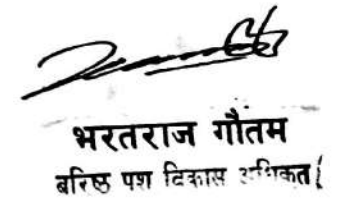 भरतराज गौतम
बरिष्ठ पशु विकास अधिकृत